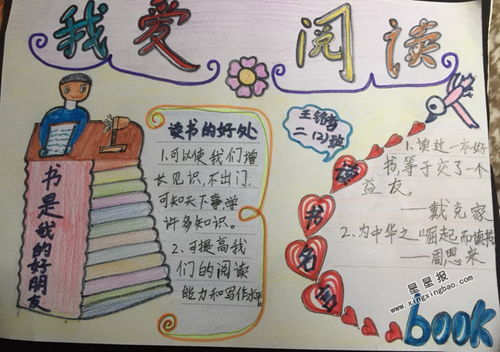 我爱阅读
书是我的好朋友
读书的好处
1.可以使我们增
长见识,不出门,
可知天下事,学
许多知识。
2.可提高我
们的阅读
能力和写作水平。
二(2)班
读书名句
1.读过一本好
书,等于交了一个
益友。
——戴克家
2、为中华之崛起而读书
——周恩来
book
星星报
www.xingxingbao.com